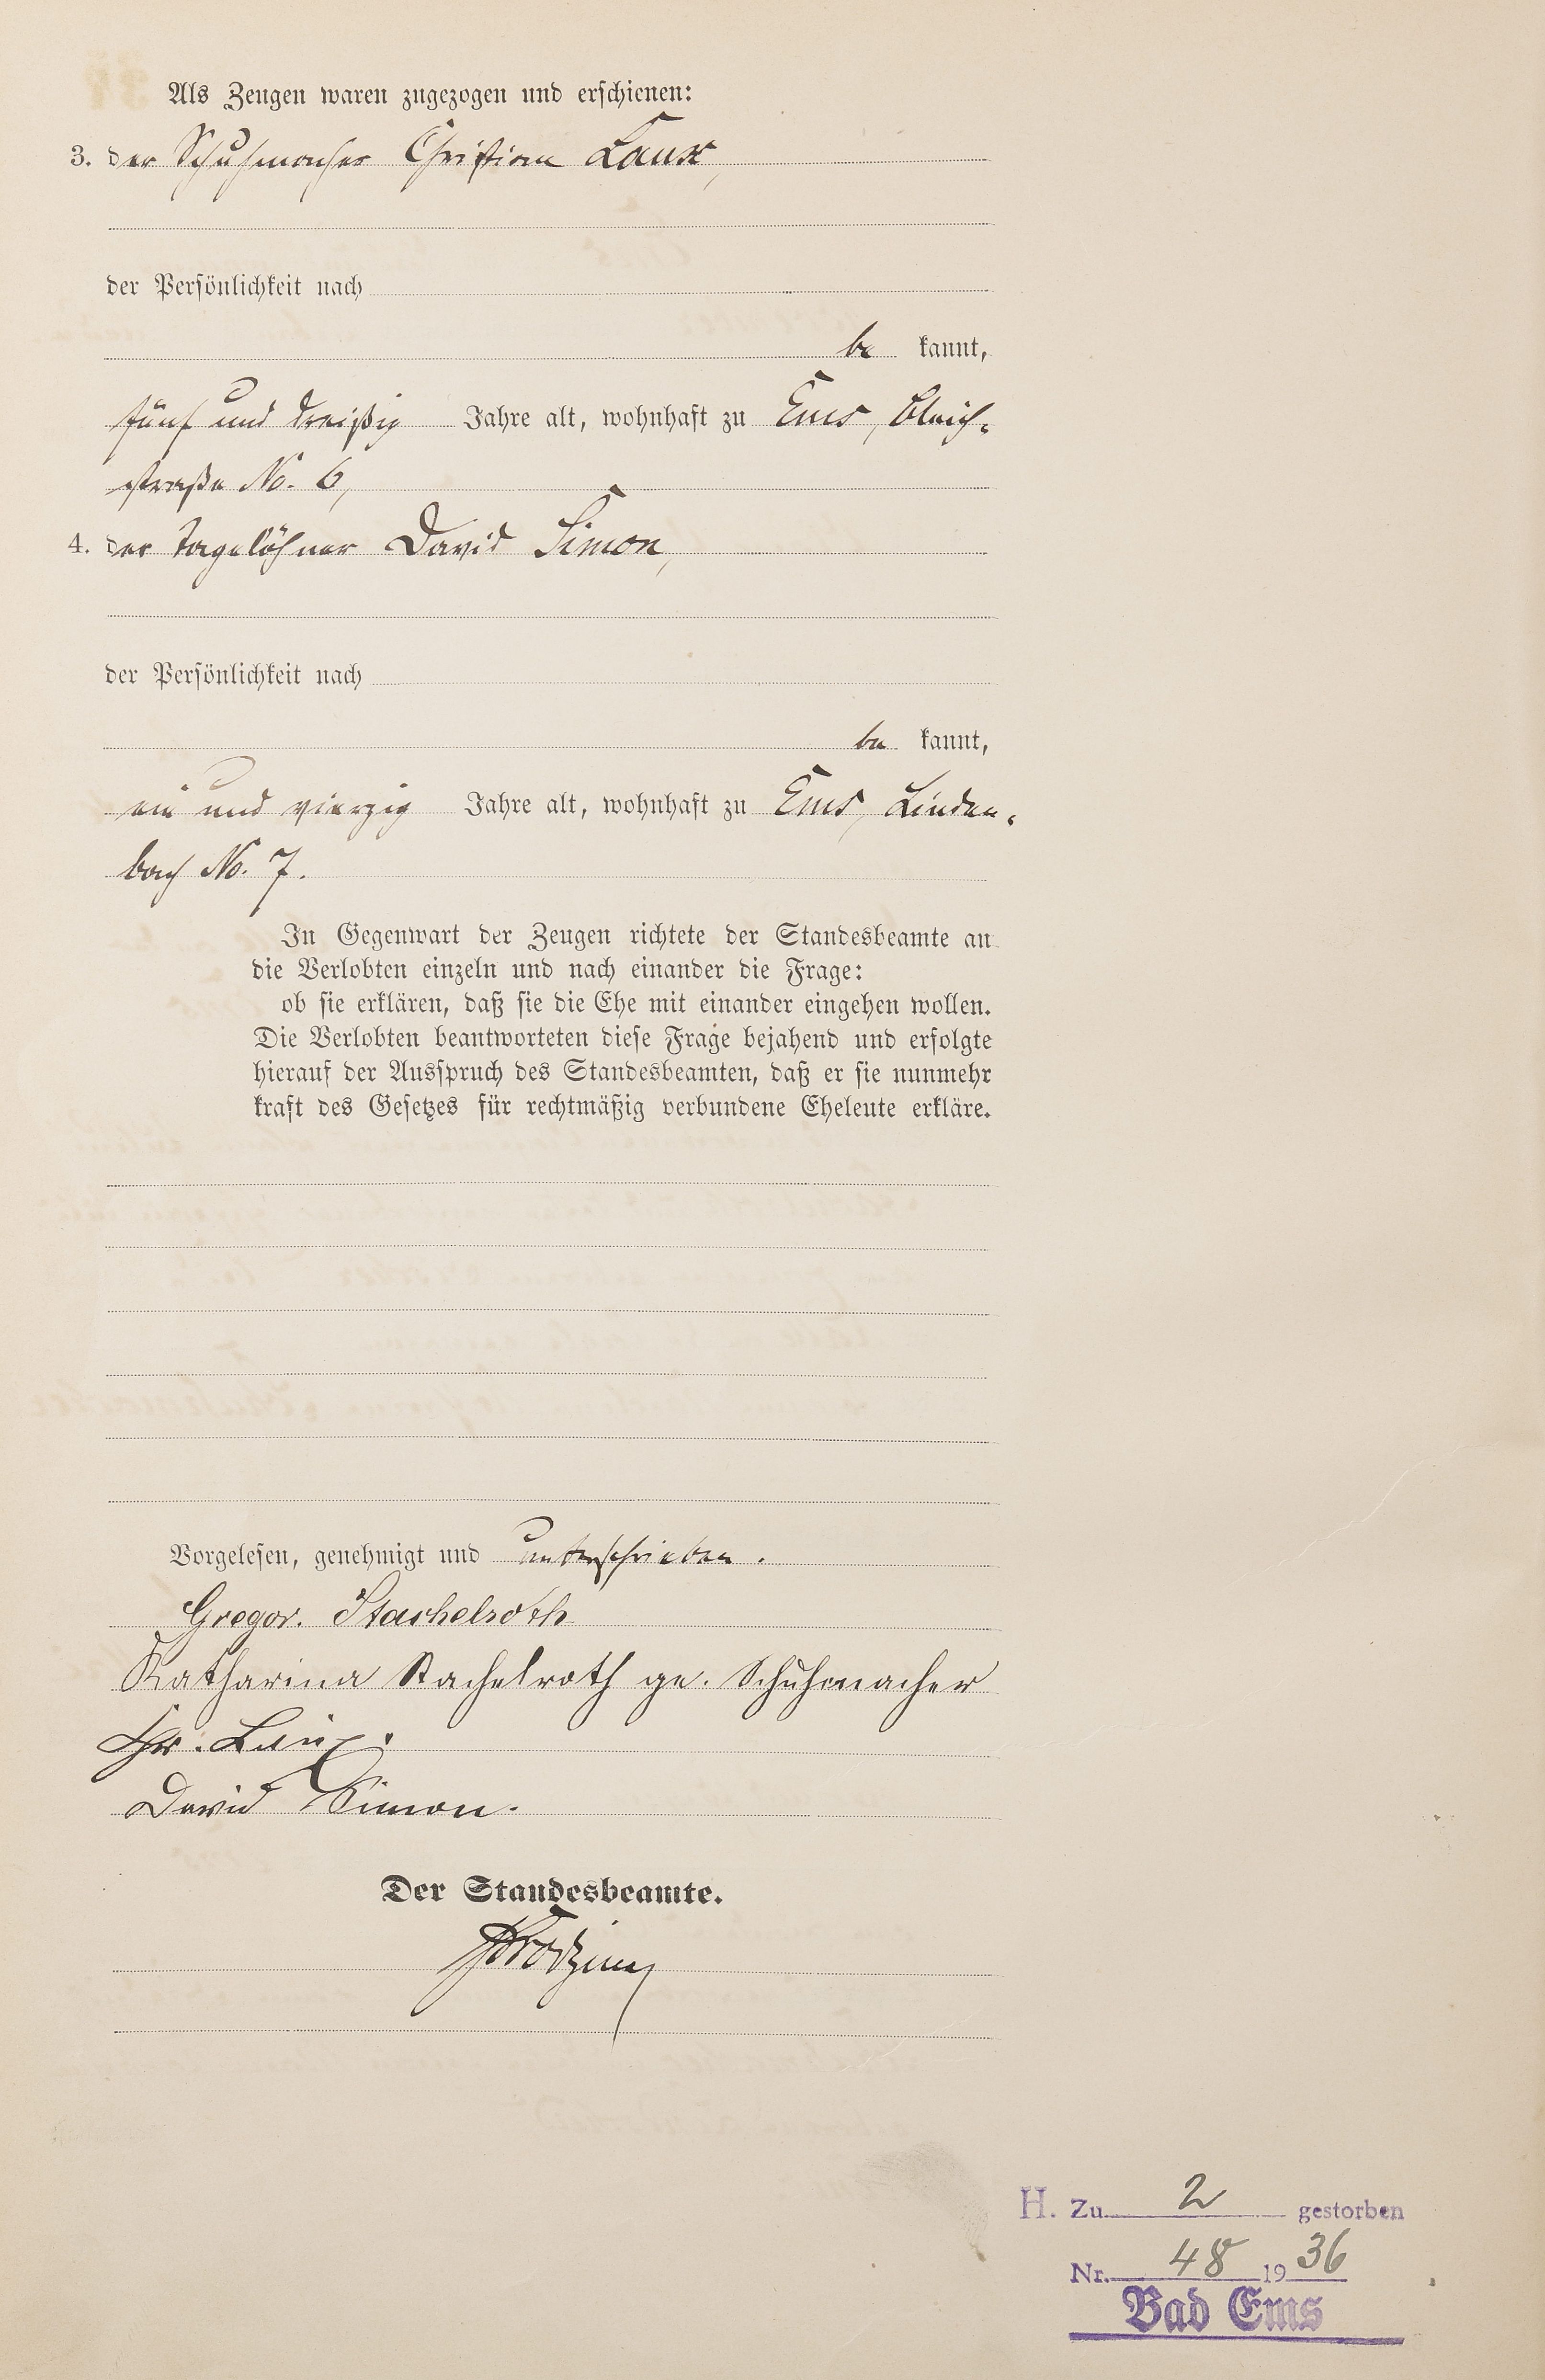 Als Zeugen waren zugezogen und erschienen:
3. der Schuhmacher Christian Laux,
der Persönlichkeit nach
be kannt,
fünf und dreißig Jahre alt, wohnhaft zu Ems, Bleich-
straße No. 6,
4. der Tagelöhner David Simon,
der Persönlichkeit nach
be kannt,
ein und vierzig Jahre alt, wohnhaft zu Ems, Linden-
bach No. 7.
In Gegenwart der Zeugen richtete der Standesbeamte an
die Verlobten einzeln und nach einander die Frage:
ob sie erklären, daß sie die Ehe mit einander eingehen wollen.
Die Verlobten beantworteten diese Frage bejahend und erfolgte
hierauf der Ausspruch des Standesbeamten, daß er sie nunmehr
kraft des Gesetzes für rechtmäßig verbundene Eheleute erkläre.
Vorgelesen, genehmigt und unterschrieben.
Gregor. Stachelroth
Katharina Stachelroth ge. Schuhmacher
Chr. Laux.
David Simon.
Der Standesbeamte.
H. Zu 2 gestorben
Nr. 48 1936
Bad Ems